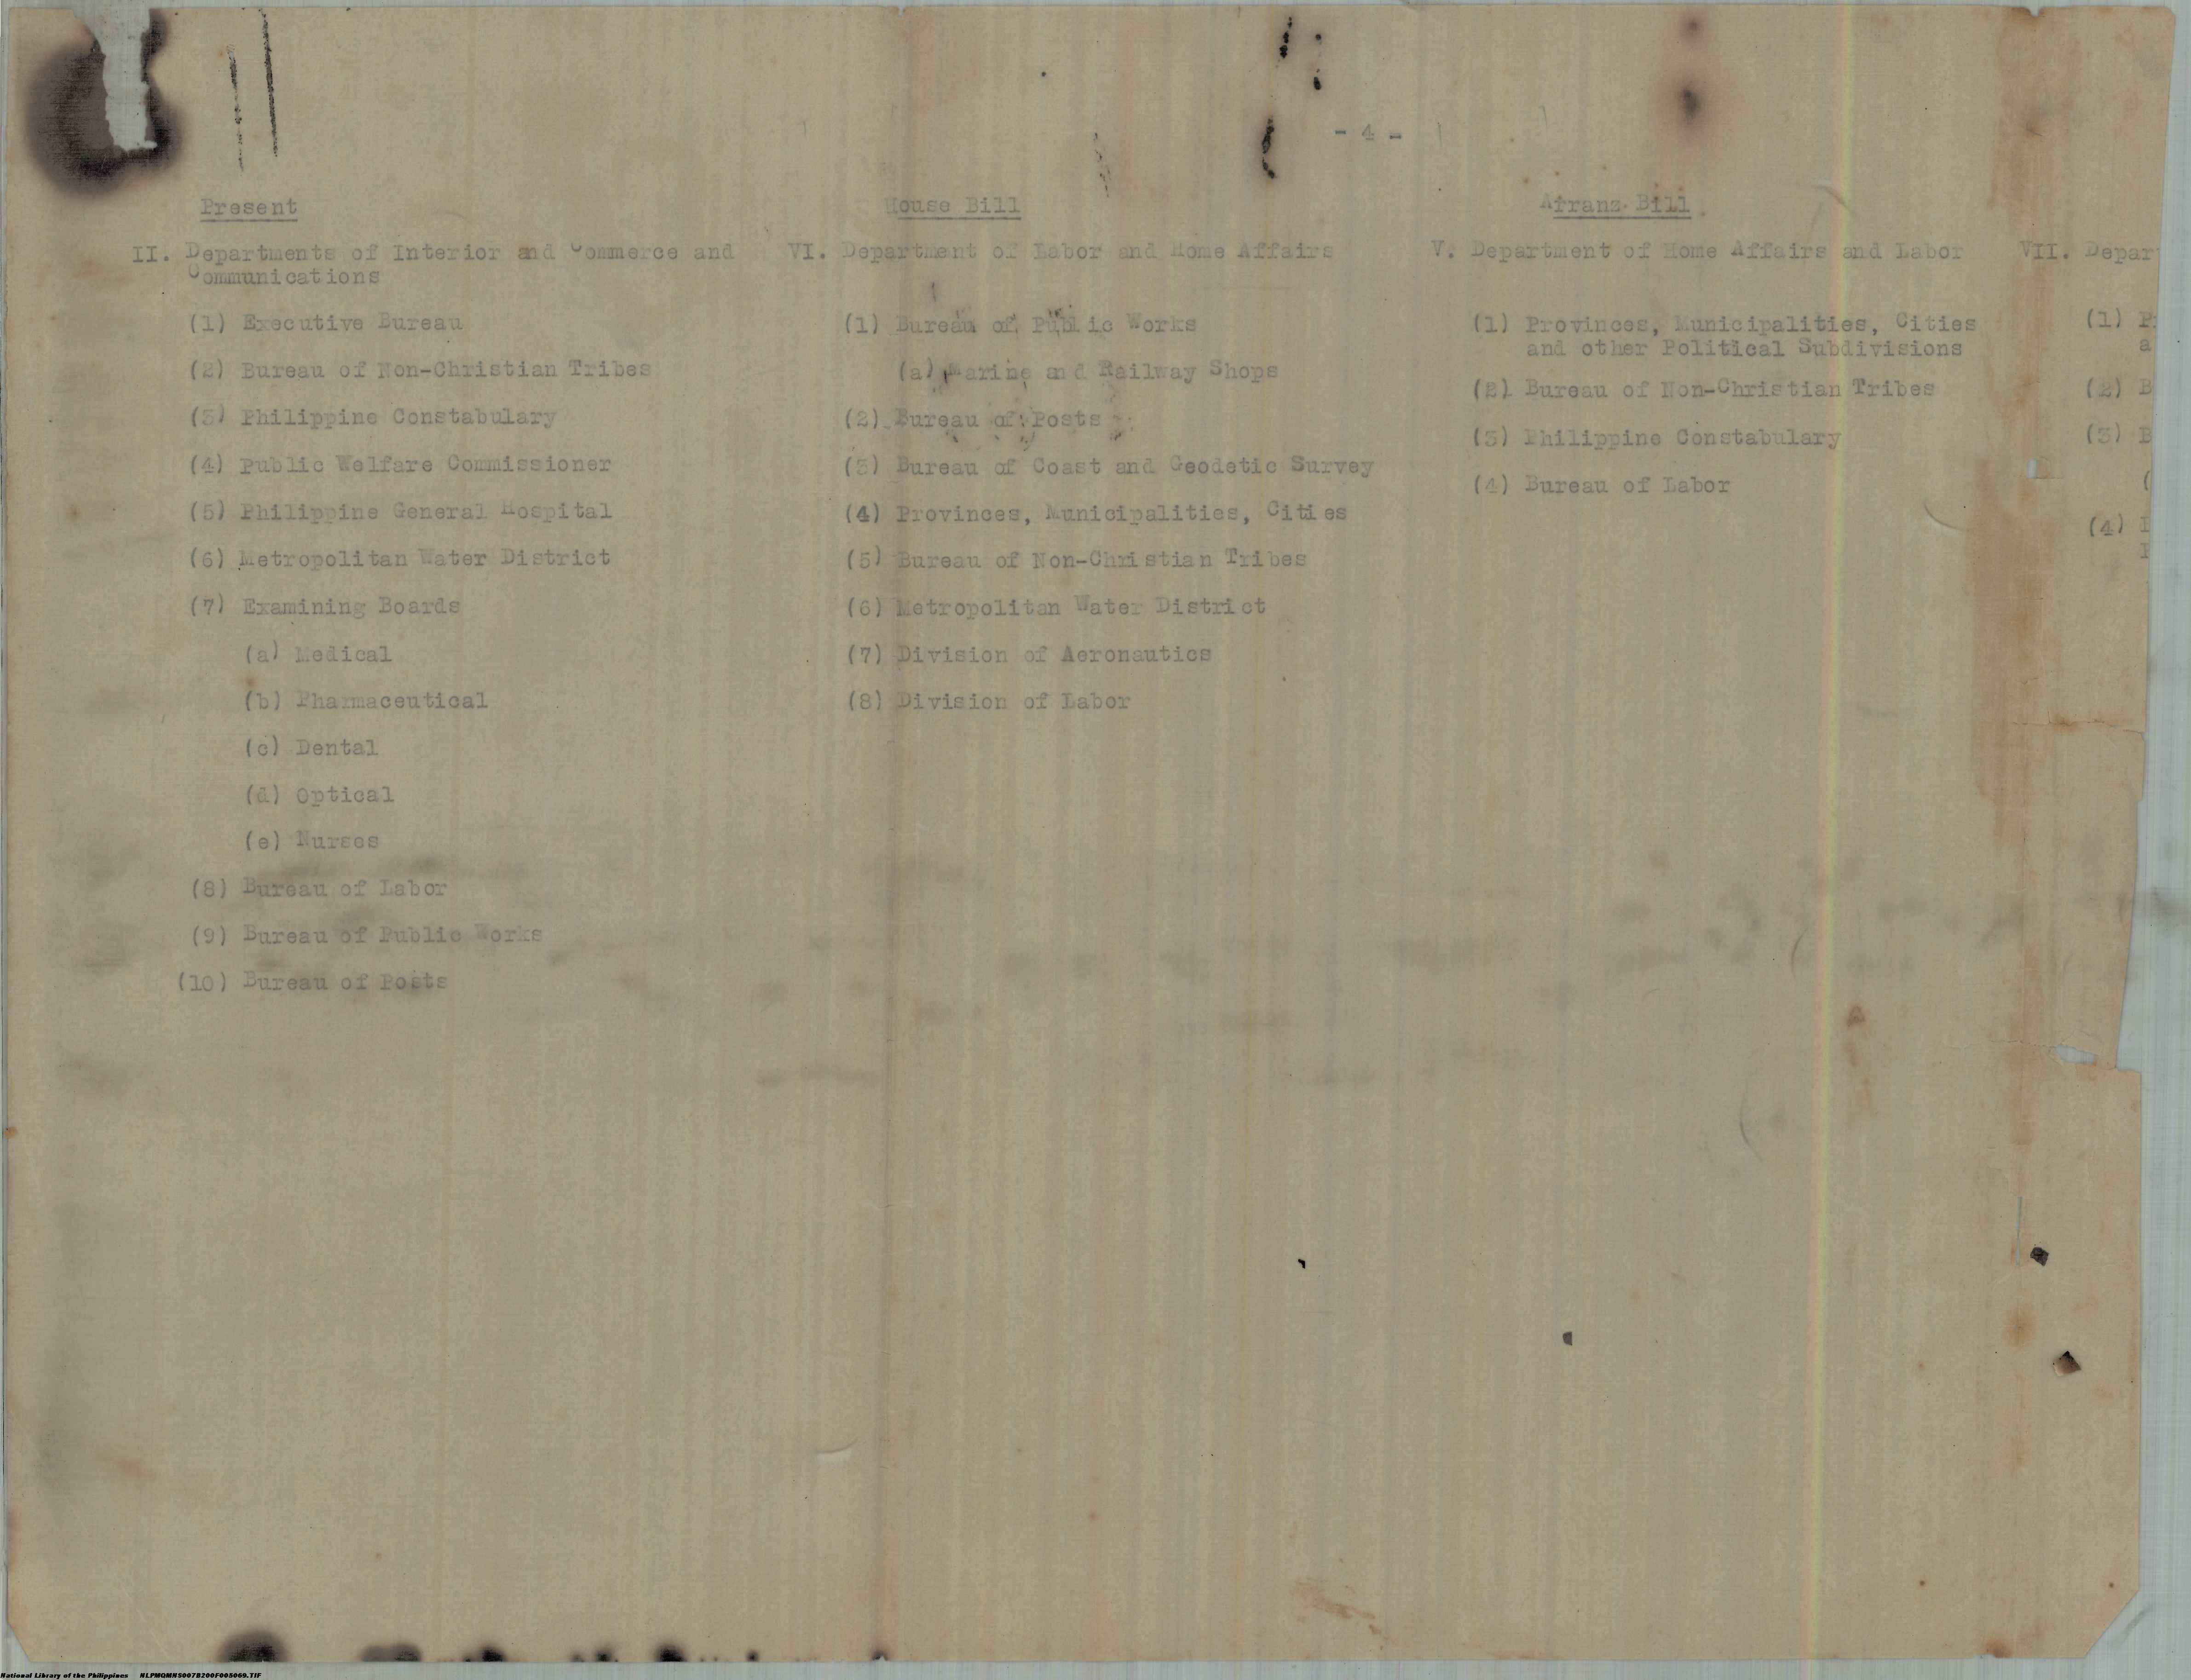 - 4 -
Present
II. Departments of Interior and Commerce and
Communications
(1) Executive Bureau
(2) Bureau of Non-Christian Tribes
(3) Philippine Constabulary
(4) Public Welfare Commissioner
(5) Philippine General Hospital
(6) Metropolitan Water District
(7) Examining Boards
(a) Medical
(b) Pharmaceutical
(c) Dental
(d) Optical
(e) Nurses
(8) Bureau of Labor
(9) Bureau of Public Works
(10) Bureau of Posts
House Bill
VI. Department of Labor and Home Affairs
(1) Bureau of Public Works
(a) Marine and Railway Shops
(2) Bureau of Posts
(3) Bureau of Coast and Geodetic Survey
(4) Provinces, Municipalities, Cities
(5) Bureau of Non-Christian Tribes
(6) Metropolitan Water District
(7) Division of Aeronautics
(8) Division of Labor
Arranz Bill
V. Department of Home Affairs and Labor
(1) Provinces, Municipalities, Cities
and other Political Subdivisions
(2) Bureau of Non-Christian Tribes
(3) Philippine Constabulary
(4) Bureau of Labor
VII. Depar
(1) P
a
(2) B
(3) B
(
(4)
National Library of the Philippines NLPMQMNS007B200F005069.TIF